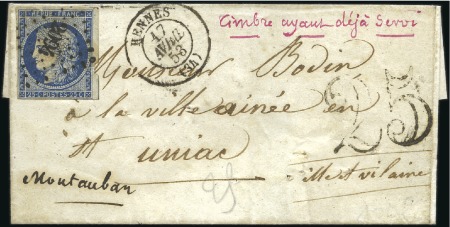 REPUB. FRANC.
25 C. POSTES 25 C.
RENNES
17
AVRIL
53
(34)
timbre ayant déjà Servi
Monsieur Bodin
a la ville ainée en
St uniac
25
Montauban
ille et vilaine